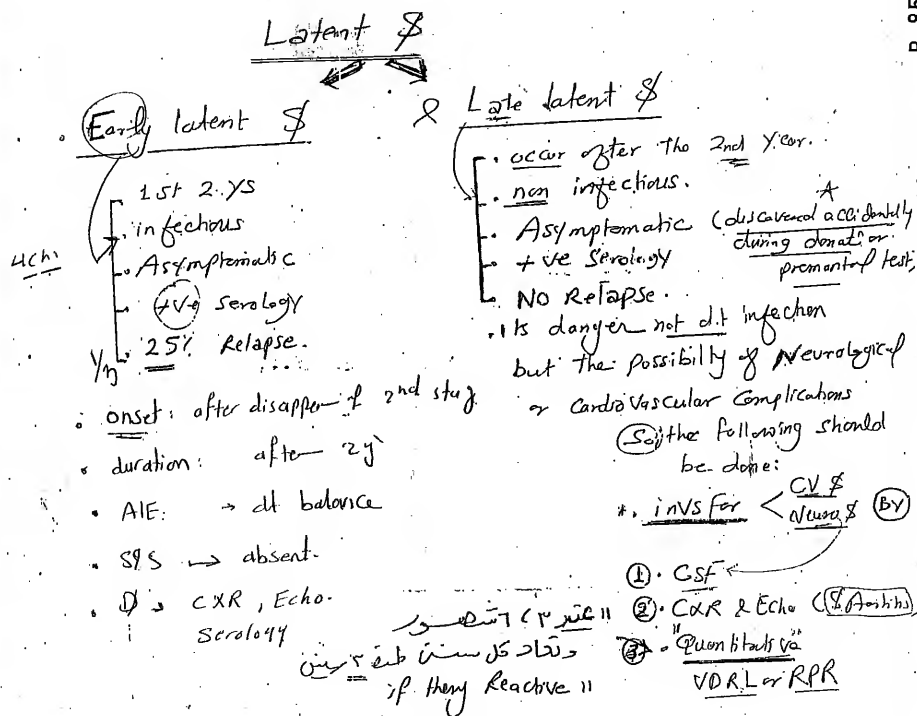 Latent $
Early latent $
1st 2 ys
infectious
Asymptomatic
+ve serology
25% Relapse.
onset: after disappear of 2nd stag
duration: after 2y
AIE: → dt balance
S/S → absent.
D → CXR, Echo.
Serology
& Late latent $
occur after the 2nd year.
non infectious.
Asymptomatic (discovered accidentally
during donation or
premarital test,
+ve serology
NO Relapse.
Its danger not d.t infection
but the Possibilty of Neurological
or Cardiovascular Complications
So, the following should
be done:
*. invs for < CV $
Neuro $ By
①. CSF
②. CXR & Echo
③. "Quantitative"
VDRL or RPR
وتعاد كل سنة
if they Reactive "